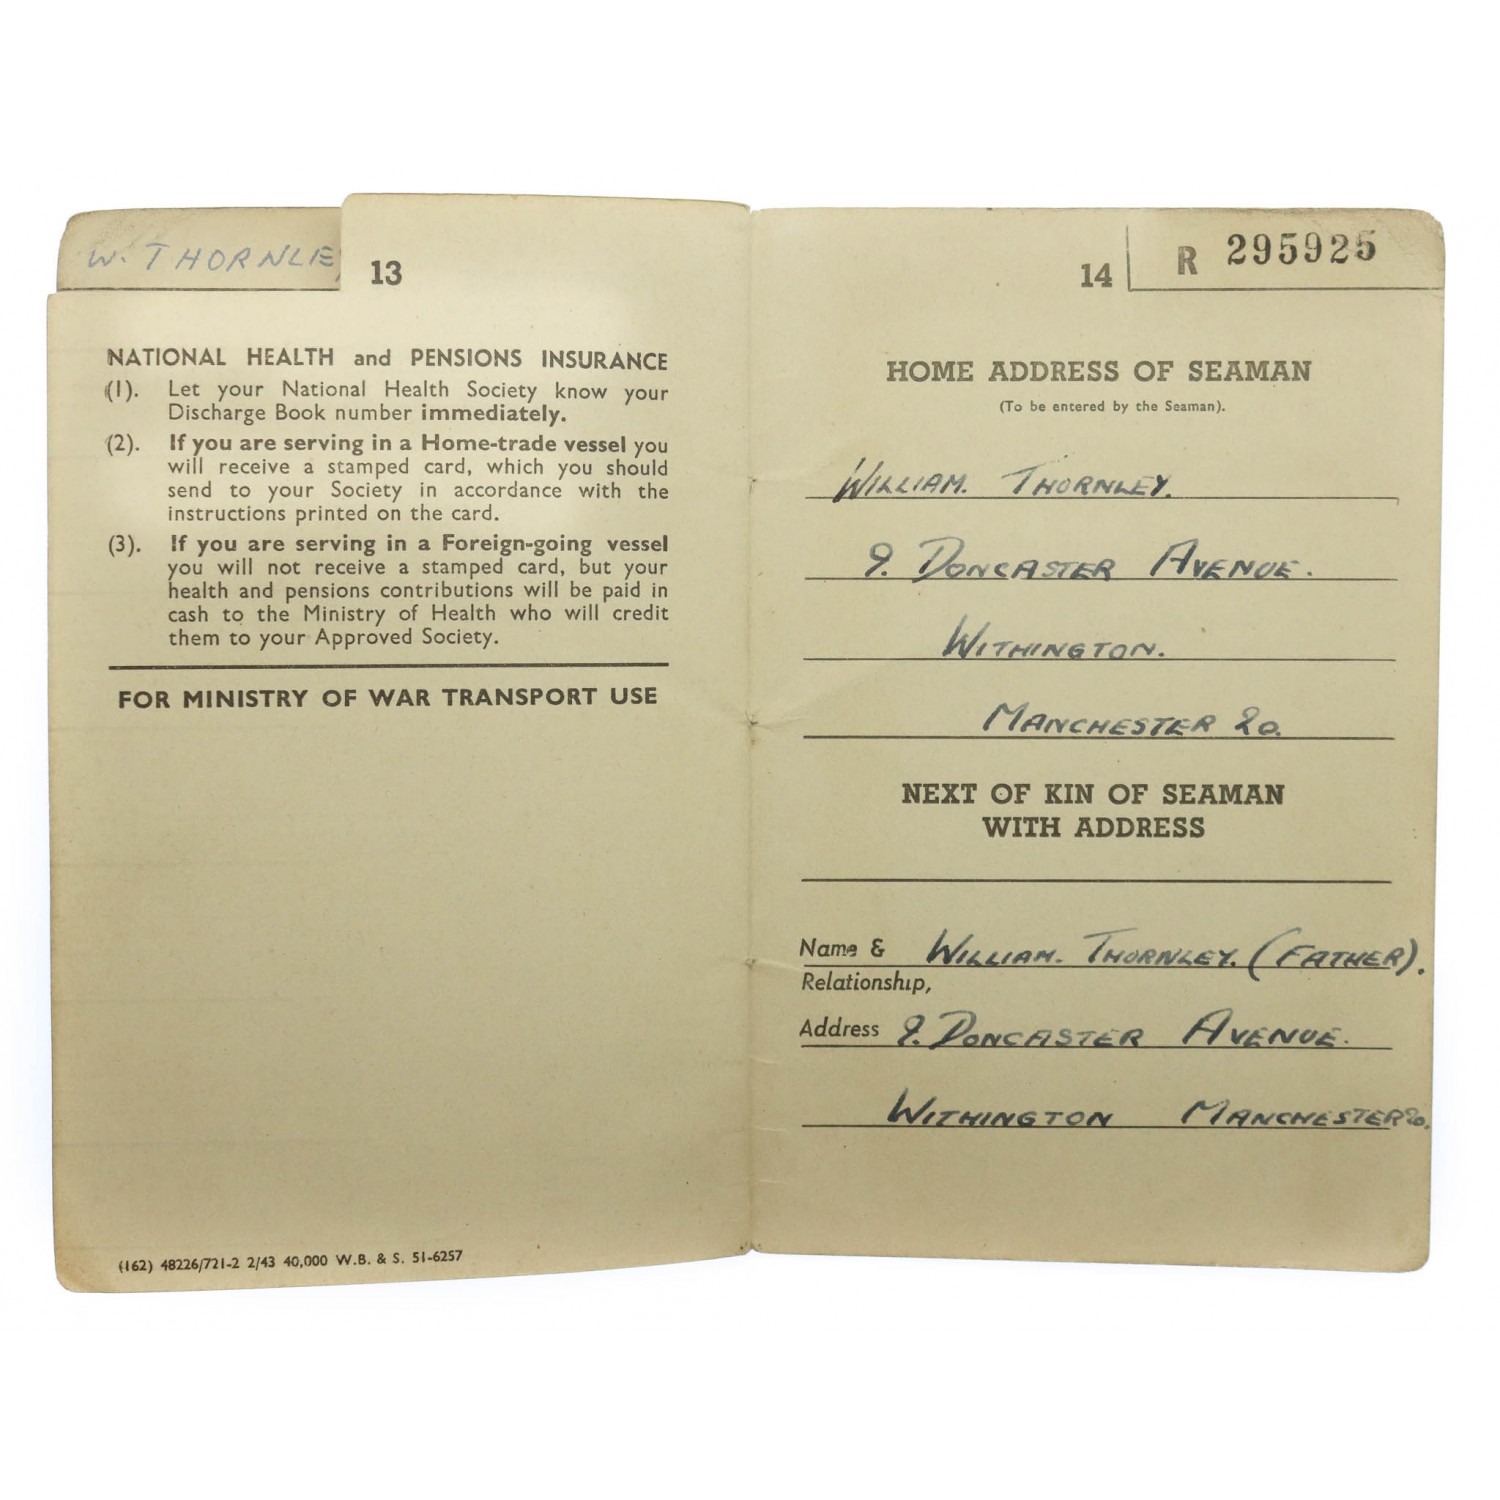 W. THORNLEY
13
NATIONAL HEALTH and PENSIONS INSURANCE
(1). Let your National Health Society know your
Discharge Book number immediately.
(2). If you are serving in a Home-trade vessel you
will receive a stamped card, which you should
send to your Society in accordance with the
instructions printed on the card.
(3). If you are serving in a Foreign-going vessel
you will not receive a stamped card, but your
health and pensions contributions will be paid in
cash to the Ministry of Health who will credit
them to your Approved Society.
FOR MINISTRY OF WAR TRANSPORT USE
(162) 48226/721-2 2/43 40,000 W.B. & S. 51-6257
14
R 295925
HOME ADDRESS OF SEAMAN
(To be entered by the Seaman).
WILLIAM. THORNLEY.
9. DONCASTER AVENUE.
WITHINGTON.
MANCHESTER 20.
NEXT OF KIN OF SEAMAN
WITH ADDRESS
Name & WILLIAM. THORNLEY. (FATHER).
Relationship,
Address 9. DONCASTER AVENUE.
WITHINGTON MANCHESTER 20.